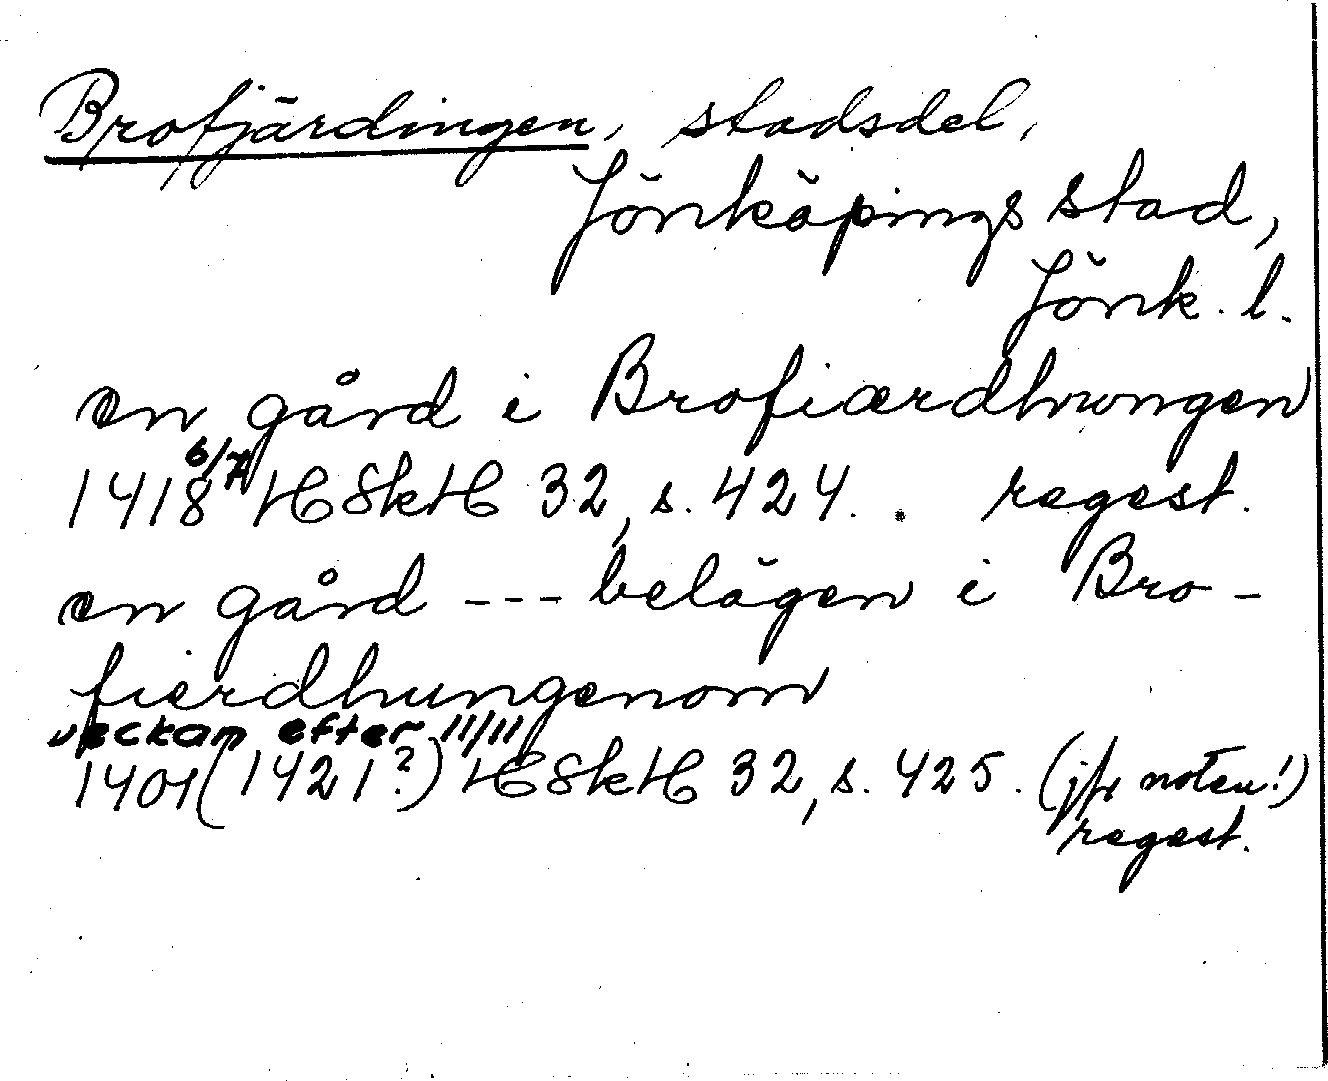 Brofjärdingen, stadsdel,
Jönköpings stad,
Jönk. l.
en gård i Brofiærdhwngen
1418 6/7 HSkH 32, s. 424. regest.
en gård --- belägen i Bro-
fierdhungenom
veckan efter 11/11
1401 (1421?) HSkH 32, s. 425. (jfr noten!)
regest.